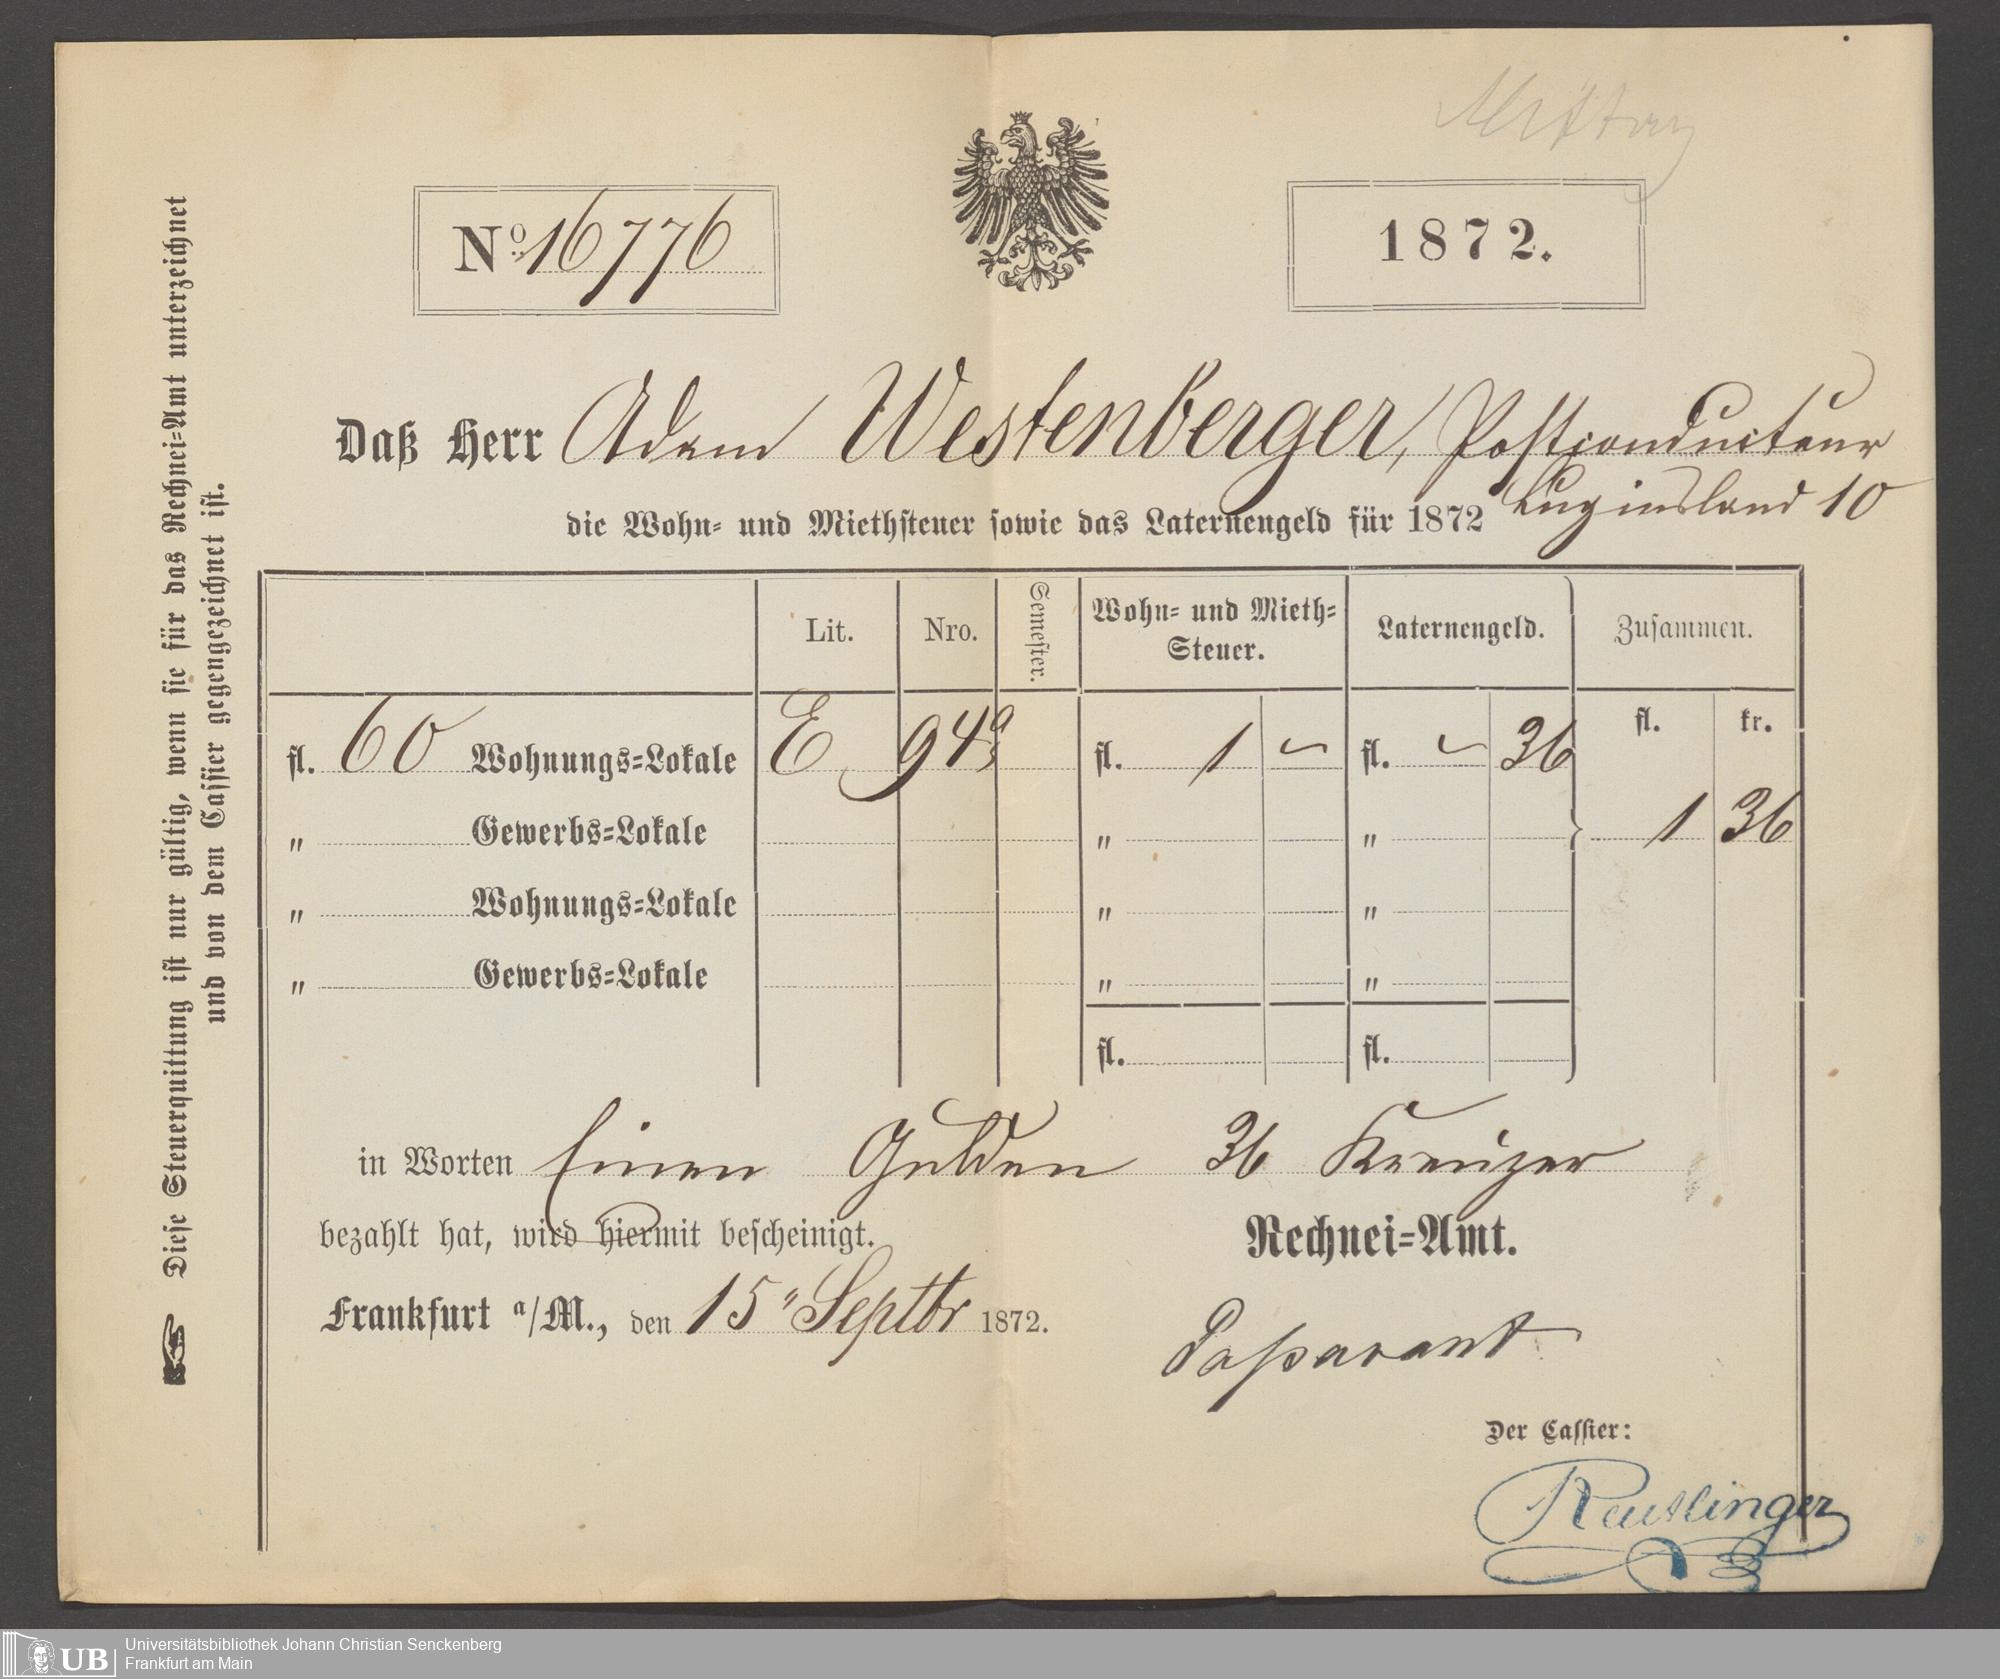 Nº 16776
1872.
Daß Herr Adam Westenberger, Postconducteur
Luginsland 10
die Wohn- und Miethsteuer sowie das Laternengeld für 1872
Lit. Nro. Semester. Wohn- und Mieth-Steuer. Laternengeld. Zusammen.
fl. kr.
fl. 60 Wohnungs-Lokale E 94a fl. 1 – fl. – 36
" Gewerbs-Lokale " " 1 36
" Wohnungs-Lokale " "
" Gewerbs-Lokale " "
fl. fl.
in Worten Einen Gulden 36 Kreuzer
bezahlt hat, wird hiermit bescheinigt.
Rechnei-Amt.
Frankfurt a/M., den 15" Septbr 1872.
Passavant
Der Cassier:
Reutlinger
Diese Steuerquittung ist nur gültig, wenn sie für das Rechnei-Amt unterzeichnet
und von dem Cassier gegengezeichnet ist.
UB
Universitätsbibliothek Johann Christian Senckenberg
Frankfurt am Main